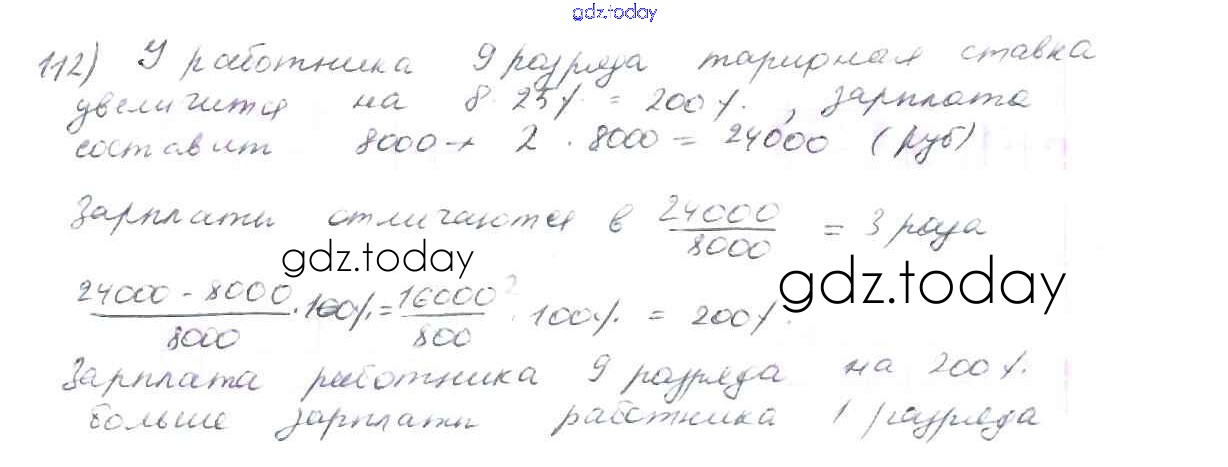 gdz.today
112) У работника 9 разряда тарифная ставка
увеличится на 8 · 25% = 200%, зарплата
составит 8000 + 2 · 8000 = 24000 (руб)
Зарплаты отличаются в 24000/8000 = 3 раза
gdz.today
gdz.today
24000 - 8000/8000 · 100% = 16000/800 · 100% = 200%.
Зарплата работника 9 разряда на 200%.
больше зарплаты работника 1 разряда